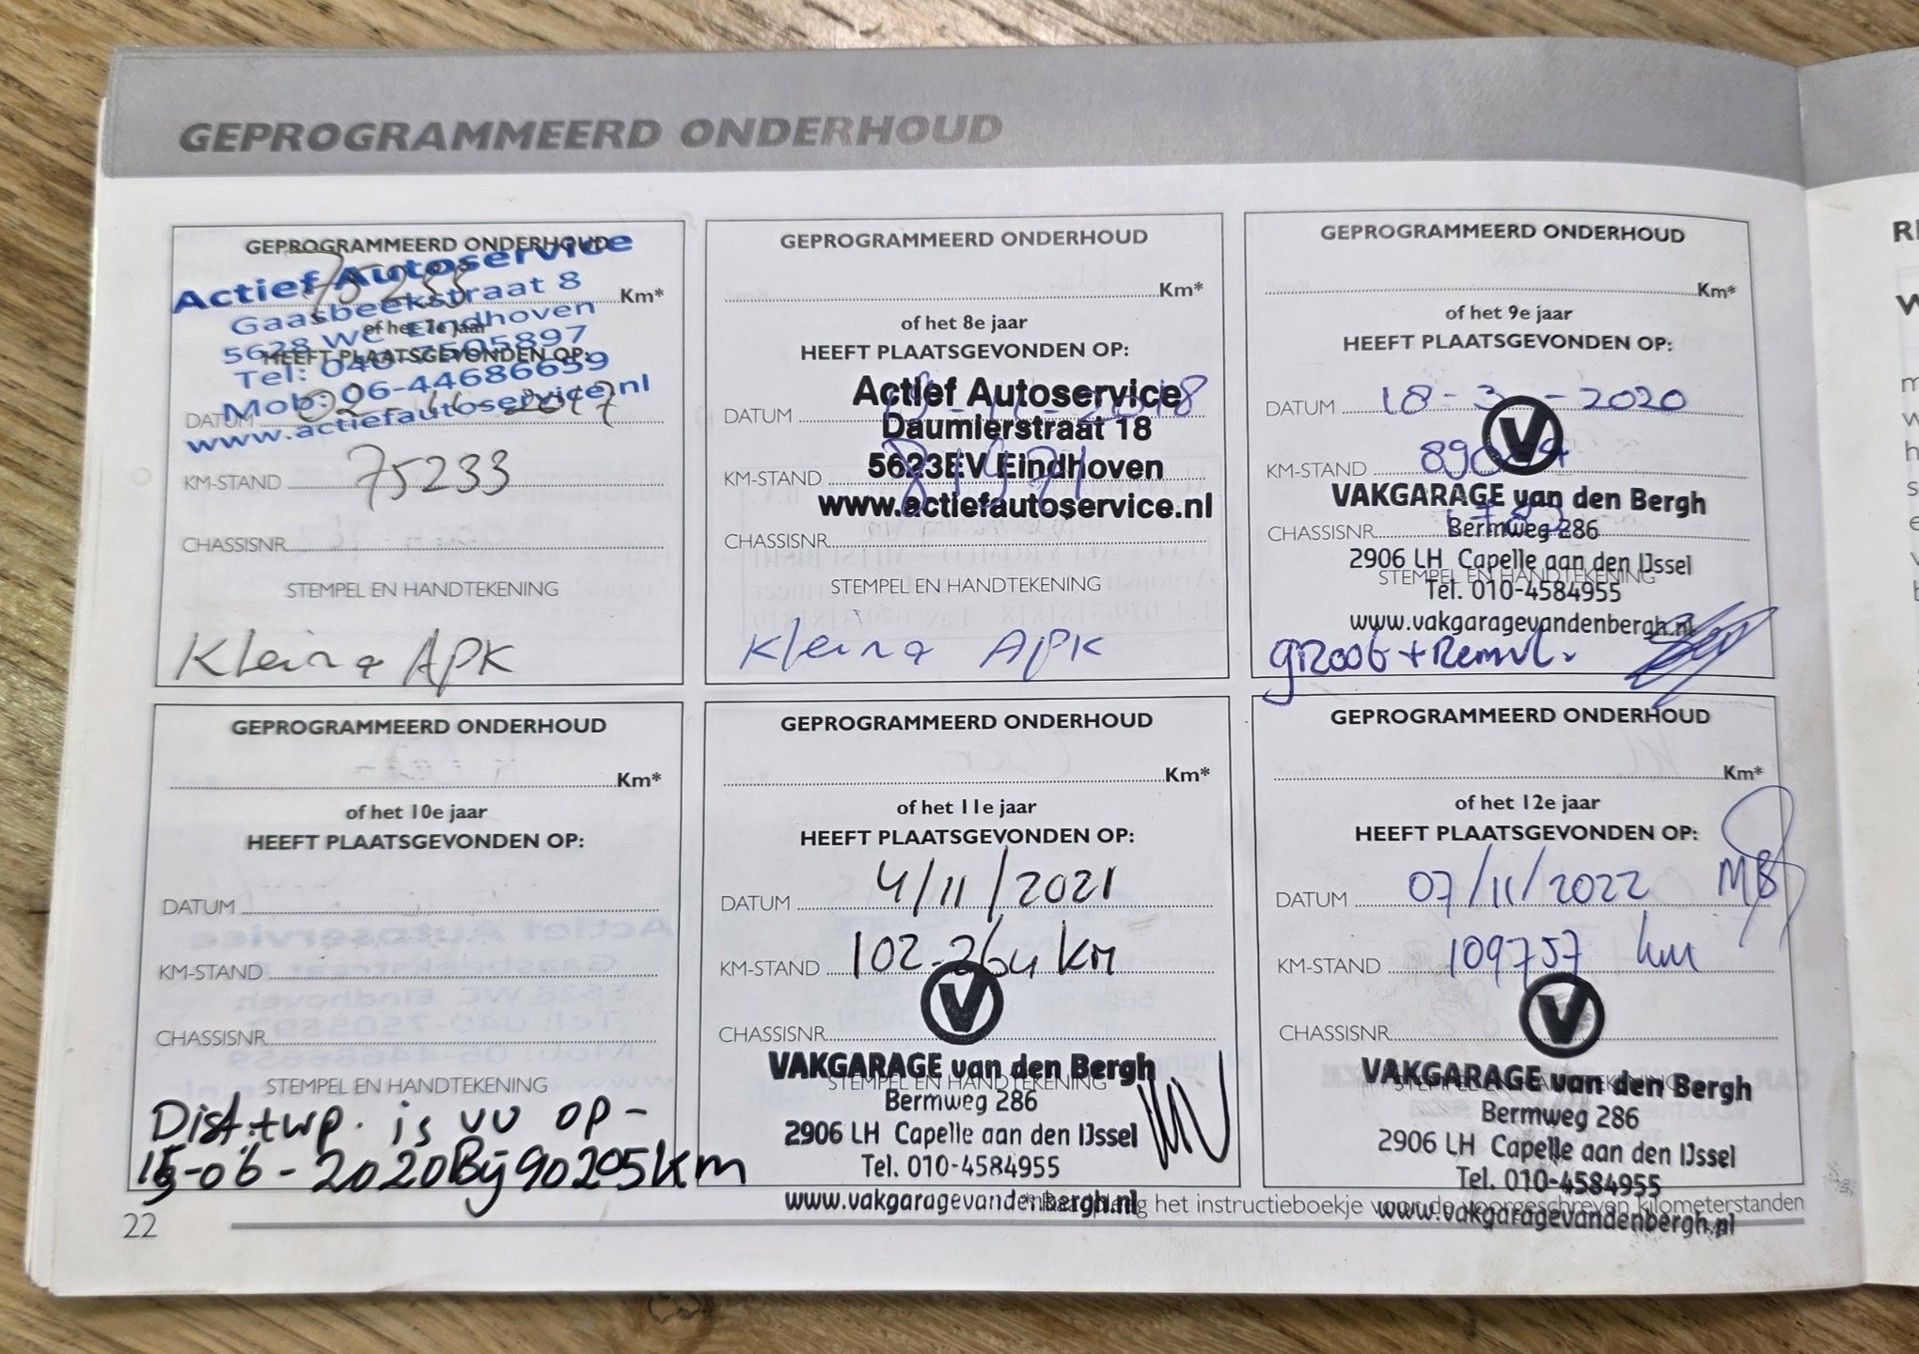 GEPROGRAMMEERD ONDERHOUD
GEPROGRAMMEERD ONDERHOUD
75233
Km*
of het 7e jaar
HEEFT PLAATSGEVONDEN OP:
Actief Autoservice
Gaasbeekstraat 8
5628 WC Eindhoven
Tel: 040-7505897
Mob: 06-44686659
www.actiefautoservice.nl
DATUM 02-11-2017
KM-STAND 75233
CHASSISNR.
STEMPEL EN HANDTEKENING
Klein + APK
GEPROGRAMMEERD ONDERHOUD
Km*
of het 8e jaar
HEEFT PLAATSGEVONDEN OP:
DATUM
Actief Autoservice
Daumierstraat 18
5623EV Eindhoven
www.actiefautoservice.nl
KM-STAND
CHASSISNR.
STEMPEL EN HANDTEKENING
Klein + APK
GEPROGRAMMEERD ONDERHOUD
Km*
of het 9e jaar
HEEFT PLAATSGEVONDEN OP:
DATUM 18-3-2020
KM-STAND
CHASSISNR.
STEMPEL EN HANDTEKENING
V
VAKGARAGE van den Bergh
Bermweg 286
2906 LH Capelle aan den IJssel
Tel. 010-4584955
www.vakgaragevandenbergh.nl
groot + Remvl.
GEPROGRAMMEERD ONDERHOUD
Km*
of het 10e jaar
HEEFT PLAATSGEVONDEN OP:
DATUM
KM-STAND
CHASSISNR.
STEMPEL EN HANDTEKENING
Dist.+wp. is vv op-
15-06-2020 Bij 90205km
GEPROGRAMMEERD ONDERHOUD
Km*
of het 11e jaar
HEEFT PLAATSGEVONDEN OP:
DATUM 4/11/2021
KM-STAND 102.264 km
CHASSISNR.
STEMPEL EN HANDTEKENING
V
VAKGARAGE van den Bergh
Bermweg 286
2906 LH Capelle aan den IJssel
Tel. 010-4584955
www.vakgaragevandenbergh.nl
GEPROGRAMMEERD ONDERHOUD
Km*
of het 12e jaar
HEEFT PLAATSGEVONDEN OP:
DATUM 07/11/2022 MB
KM-STAND 109757 km
CHASSISNR.
V
VAKGARAGE van den Bergh
Bermweg 286
2906 LH Capelle aan den IJssel
Tel. 010-4584955
www.vakgaragevandenbergh.nl
het instructieboekje voor de voorgeschreven kilometerstanden
22